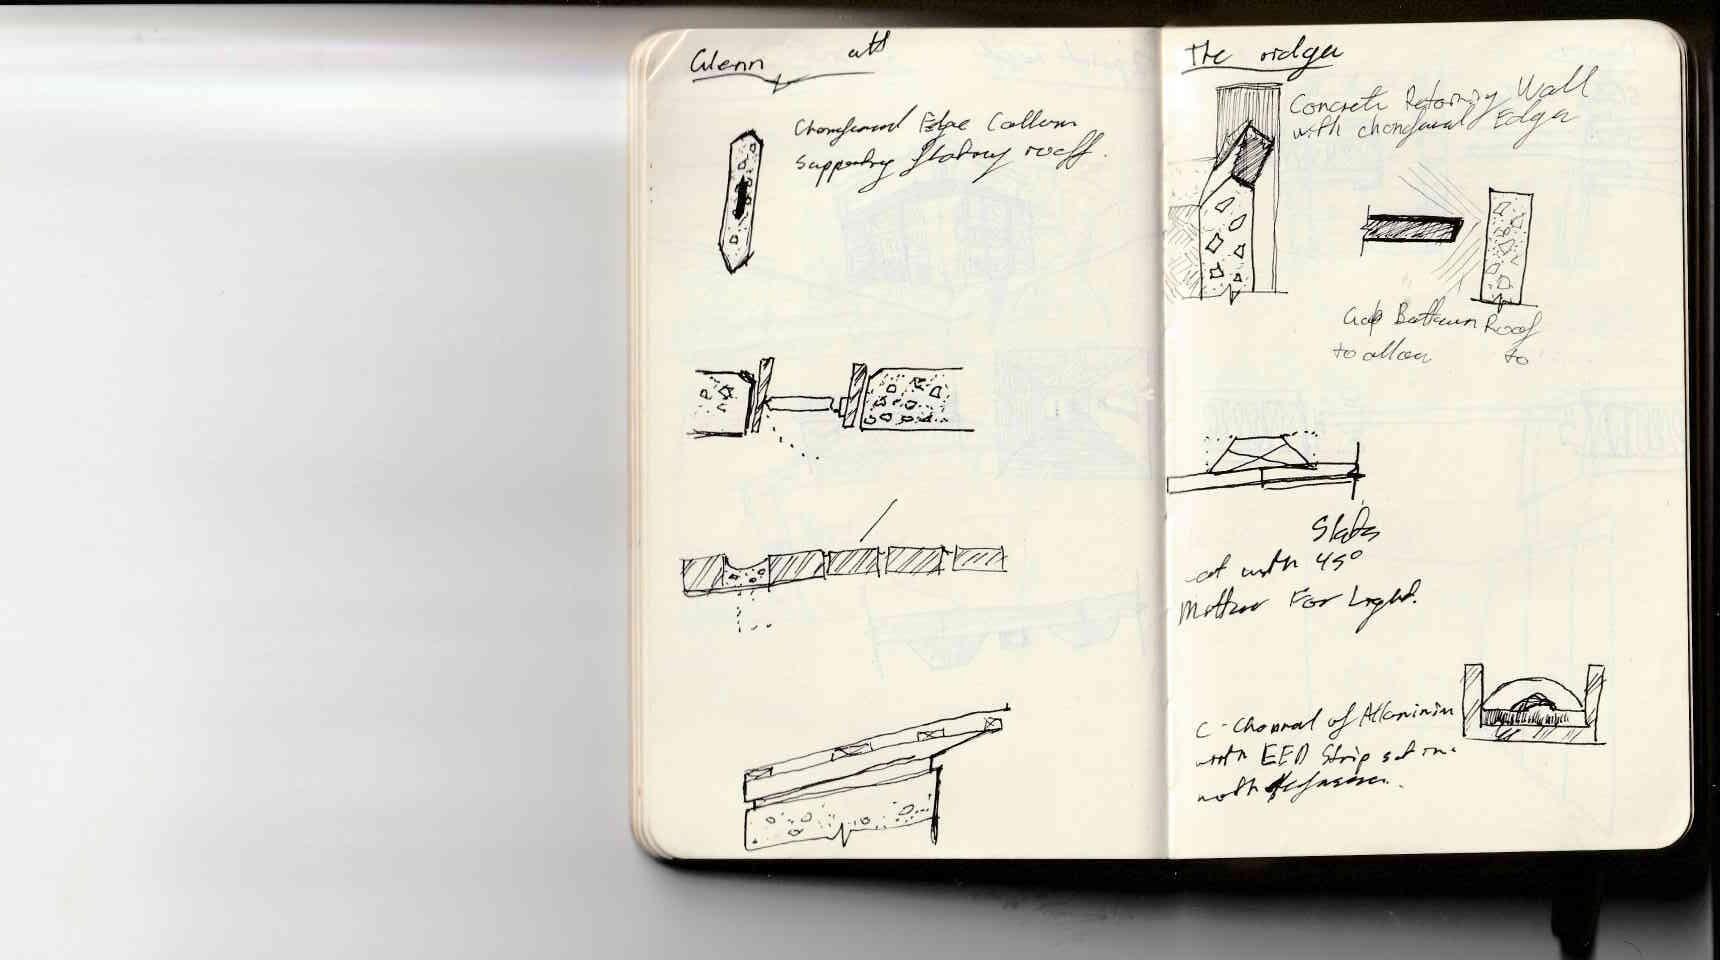 Glenn
Chamfered Edge Collumn
supporting floating rooff.
The ridge
Concrete Retaining Wall
with chamfered Edge
Gap Between Roof
to allow to
Slats
with 45°
For Light.
C-Channal of Alluminim
with LED Strip set in
with